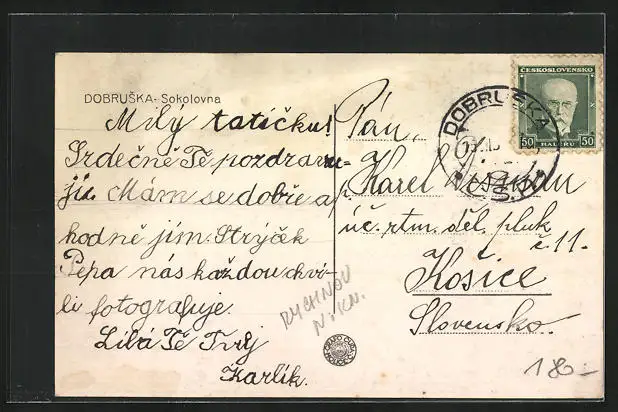 DOBRUŠKA - Sokolovna
Milý tatíčku!
Srdečně Tě pozdravu-
ji. Mám se dobře a
hodně jím. Strýček
Pepa nás každou chví-
li fotografuje.
Líbá Tě Tvůj
Karlík.
RYCHNOV
N. KN.
ČESKOSLOVENSKO
50 HALÉŘŮ 50
DOBRUŠKA
Pán
Karel
úč. rtm. děl. pluk
č 11.
Košice
Slovensko.
180-